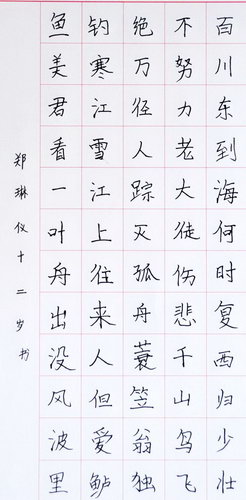 百川东到海何时复西归少壮
不努力老大徒伤悲千山鸟飞
绝万径人踪灭孤舟蓑笠翁独
钓寒江雪江上往来人但爱鲈
鱼美君看一叶舟出没风波里
郑琳仪十二岁书